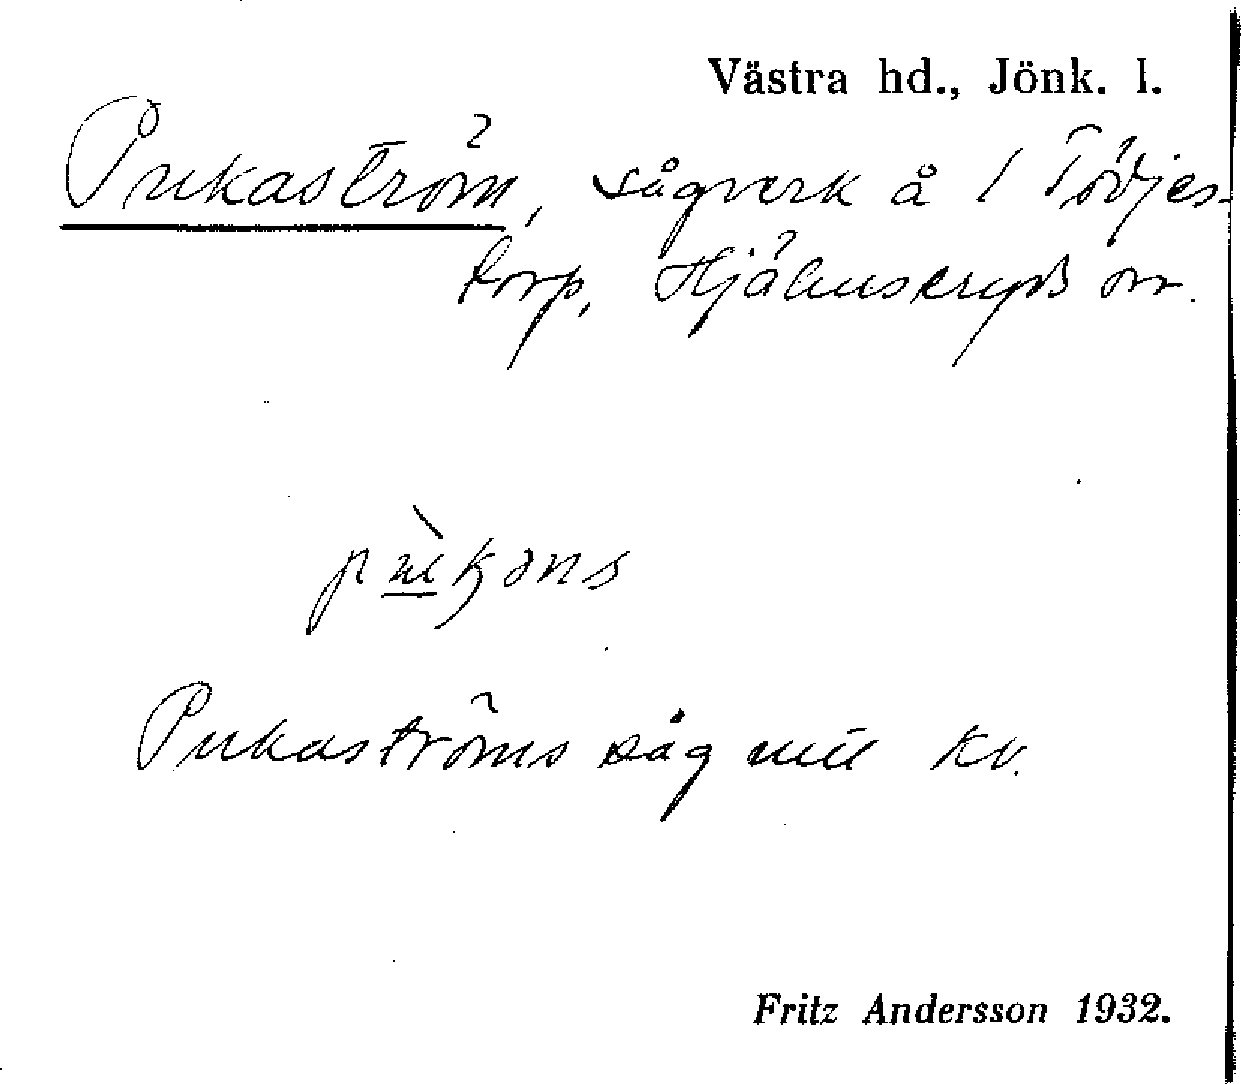 Västra hd., Jönk. l.
Pukaström, sågverk å 1 Tödjes-
torp, Hjälmseryds sn.
Pukaströms såg nut kv.
Fritz Andersson 1932.